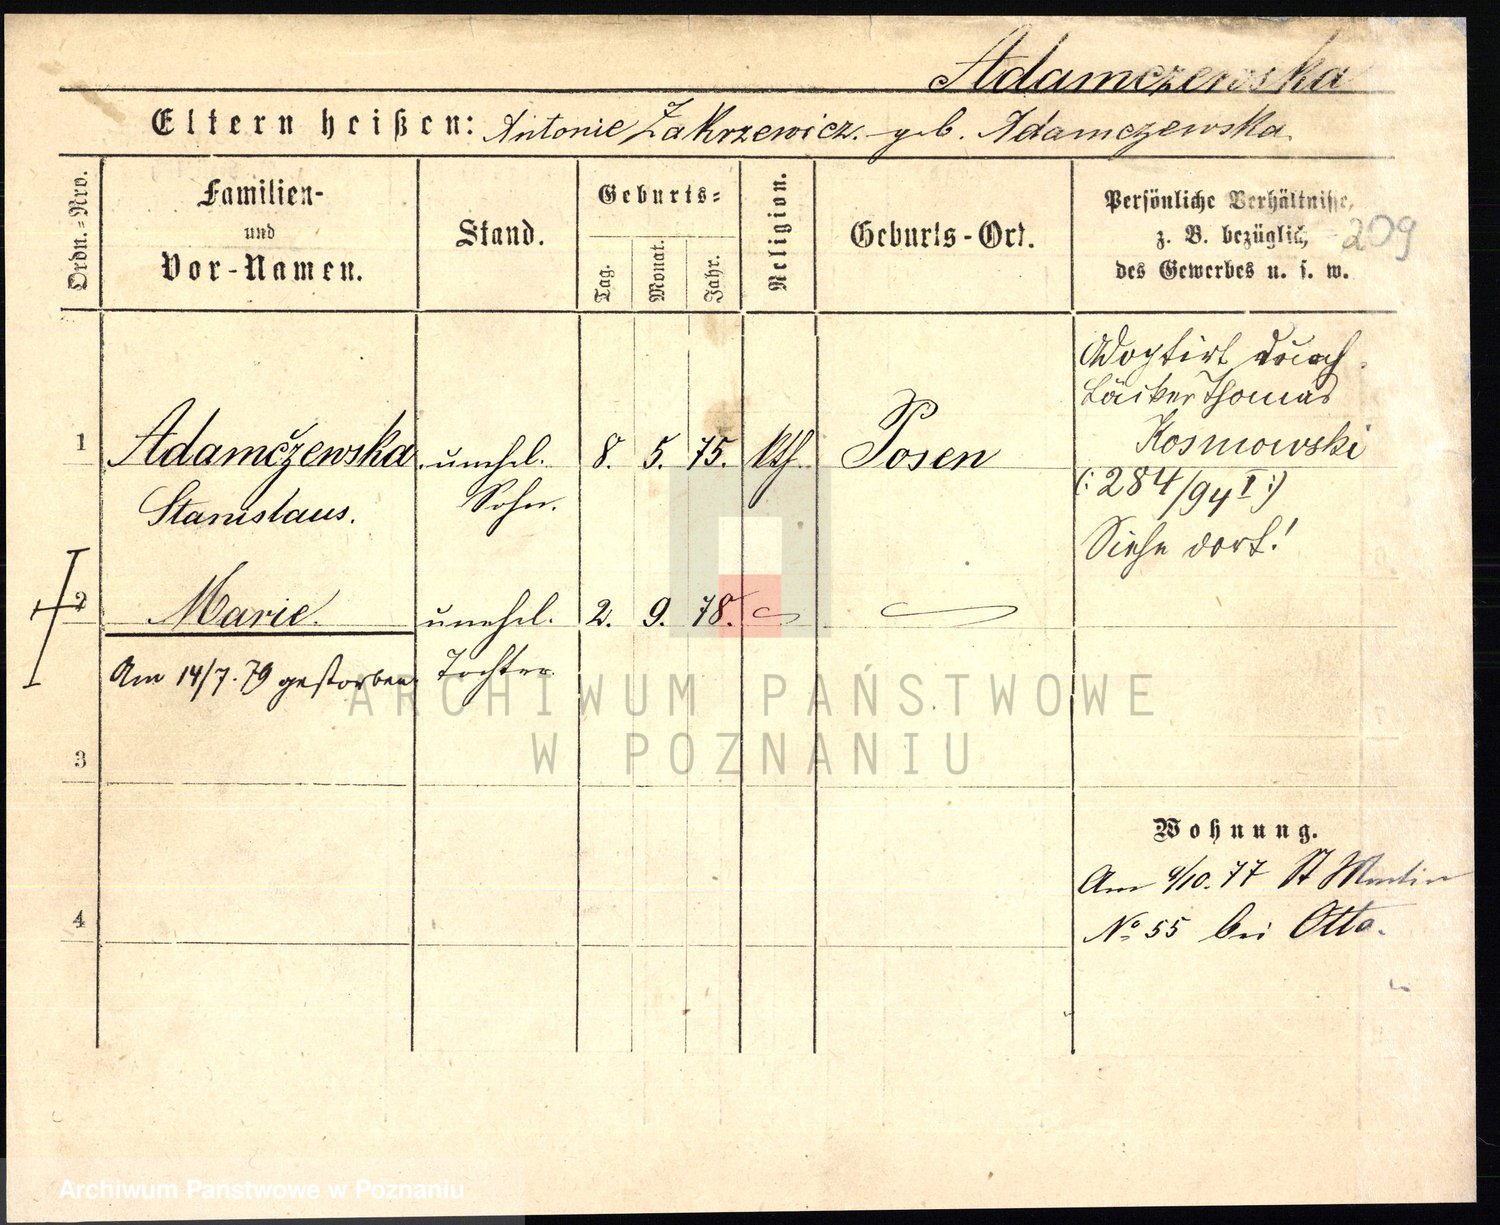 Adamczewska
Eltern heißen: Antonie Zakrzewicz. geb. Adamczewska
Ordn.-Nro.
Familien-
und
Vor-Namen.
Stand.
Geburts-
Tag.
Monat.
Jahr.
Religion.
Geburts-Ort.
Persönliche Verhältnisse,
z. B. bezüglich
des Gewerbes u. s. w.
209
Adoptirt durch
Bäcker Thomas
Kosmowski
(: 284/94 I :)
Siehe dort!
1 Adamczewska unehel. 8. 5. 75. kth. Posen
Stanislaus. Sohn.
2 Marie. unehel. 2. 9. 78.
Am 14/7. 79 gestorben Tochter.
3
4
Wohnung.
Am 9/10. 77 St Martin
No 55 bei Otto.
ARCHIWUM PAŃSTWOWE
W POZNANIU
Archiwum Państwowe w Poznaniu